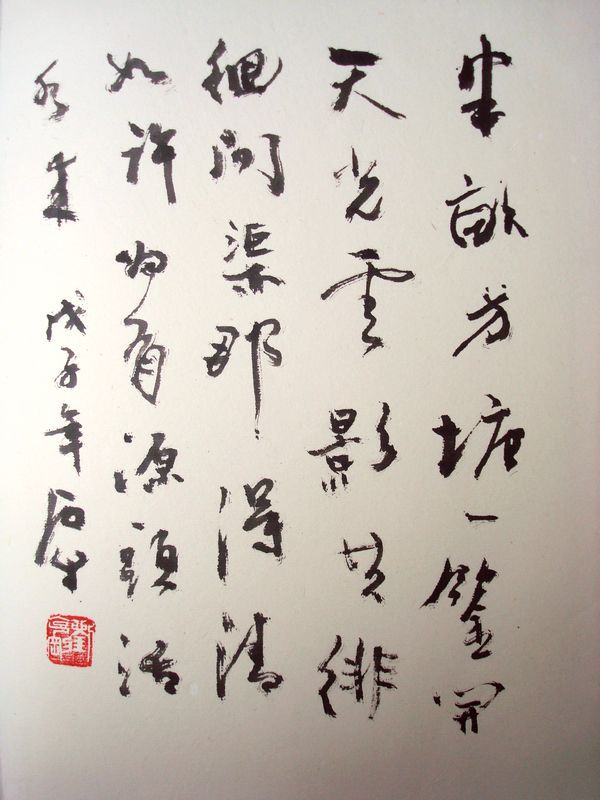 半畝方塘一鑒開
天光雲影共徘
徊問渠那得清
如許為有源頭活
水來 戊子年